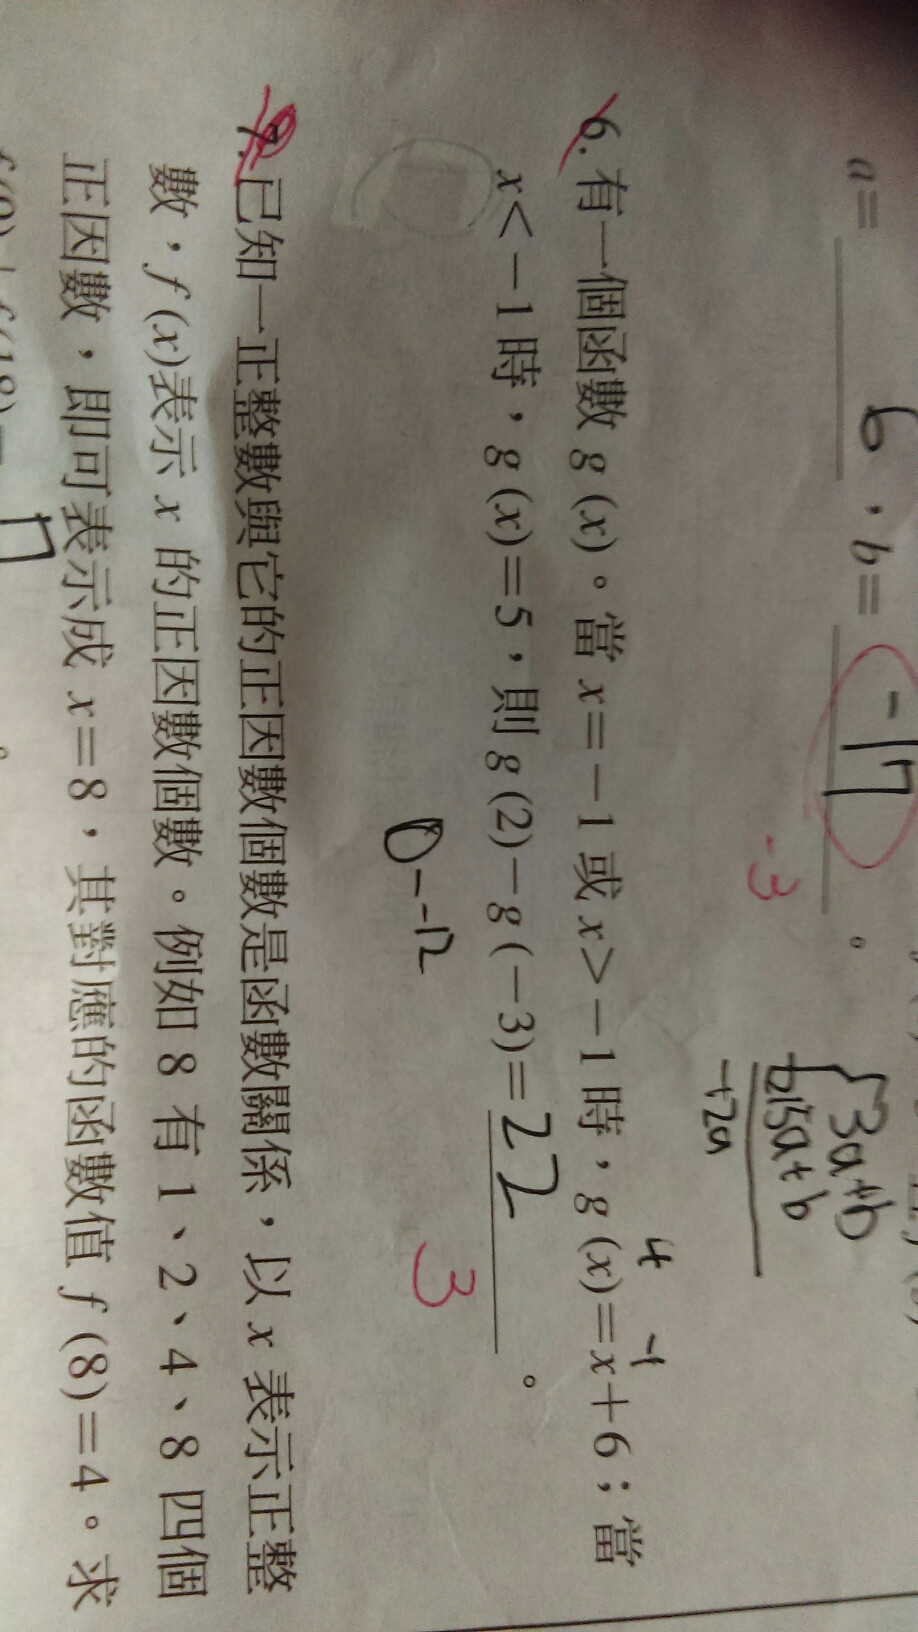 a= 6 , b= -17 。
-3
3a+b
15a+b
-12a
6. 有一個函數 g (x)。當 x=-1 或 x>-1 時，g (x)=x+6；當
4 -1
x<-1 時，g (x)=5，則 g (2)-g (-3)= 22 。
3
--12
7. 已知一正整數與它的正因數個數是函數關係，以 x 表示正整
數，f (x)表示 x 的正因數個數。例如 8 有 1、2、4、8 四個
正因數，即可表示成 x=8，其對應的函數值 f (8)=4。求